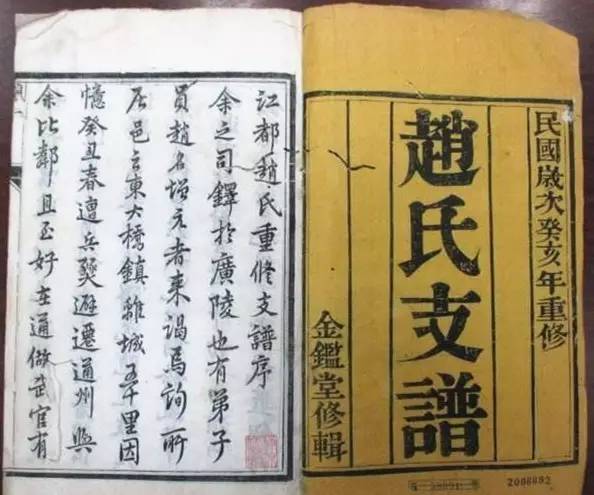 民國歲次癸亥年重修
趙氏支譜
金鑑堂修輯
2006892
江都趙氏重修支譜序
余之司鐸於廣陵也有弟子
員趙名增元者來謁焉詢所
居邑之東大橋鎮離城五十里因
憶癸丑春遭兵燹避遷通州與
余比鄰且至好在通做武官有